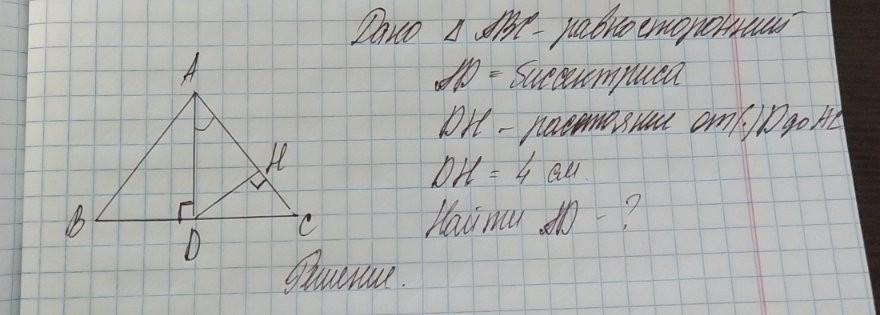 Дано Δ ABC - равносторонний
AD = биссектриса
DH - расстояние от (·) D до AC
DH = 4 см.
Найти AD - ?
A
H
B
D
C
Решение.